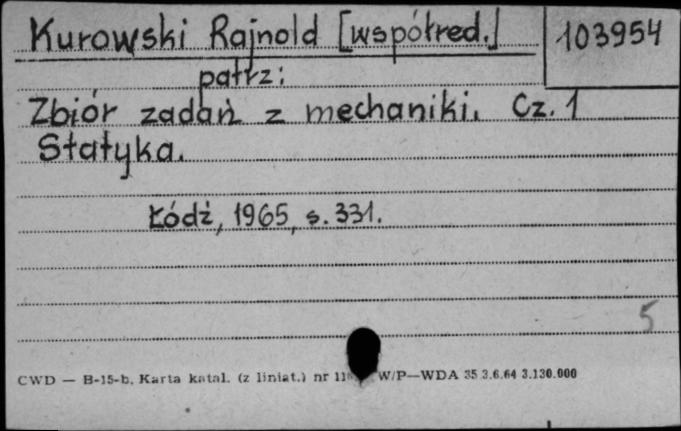 Kurowski Rajnold [współred.] 103954
patrz:
Zbiór zadań z mechaniki. Cz. 1
Statyka.
Łódź, 1965, s. 331.
5
CWD — B-15-b. Karta katal. (z liniat.) nr W/P—WDA 35 3.6.64 3.130.000